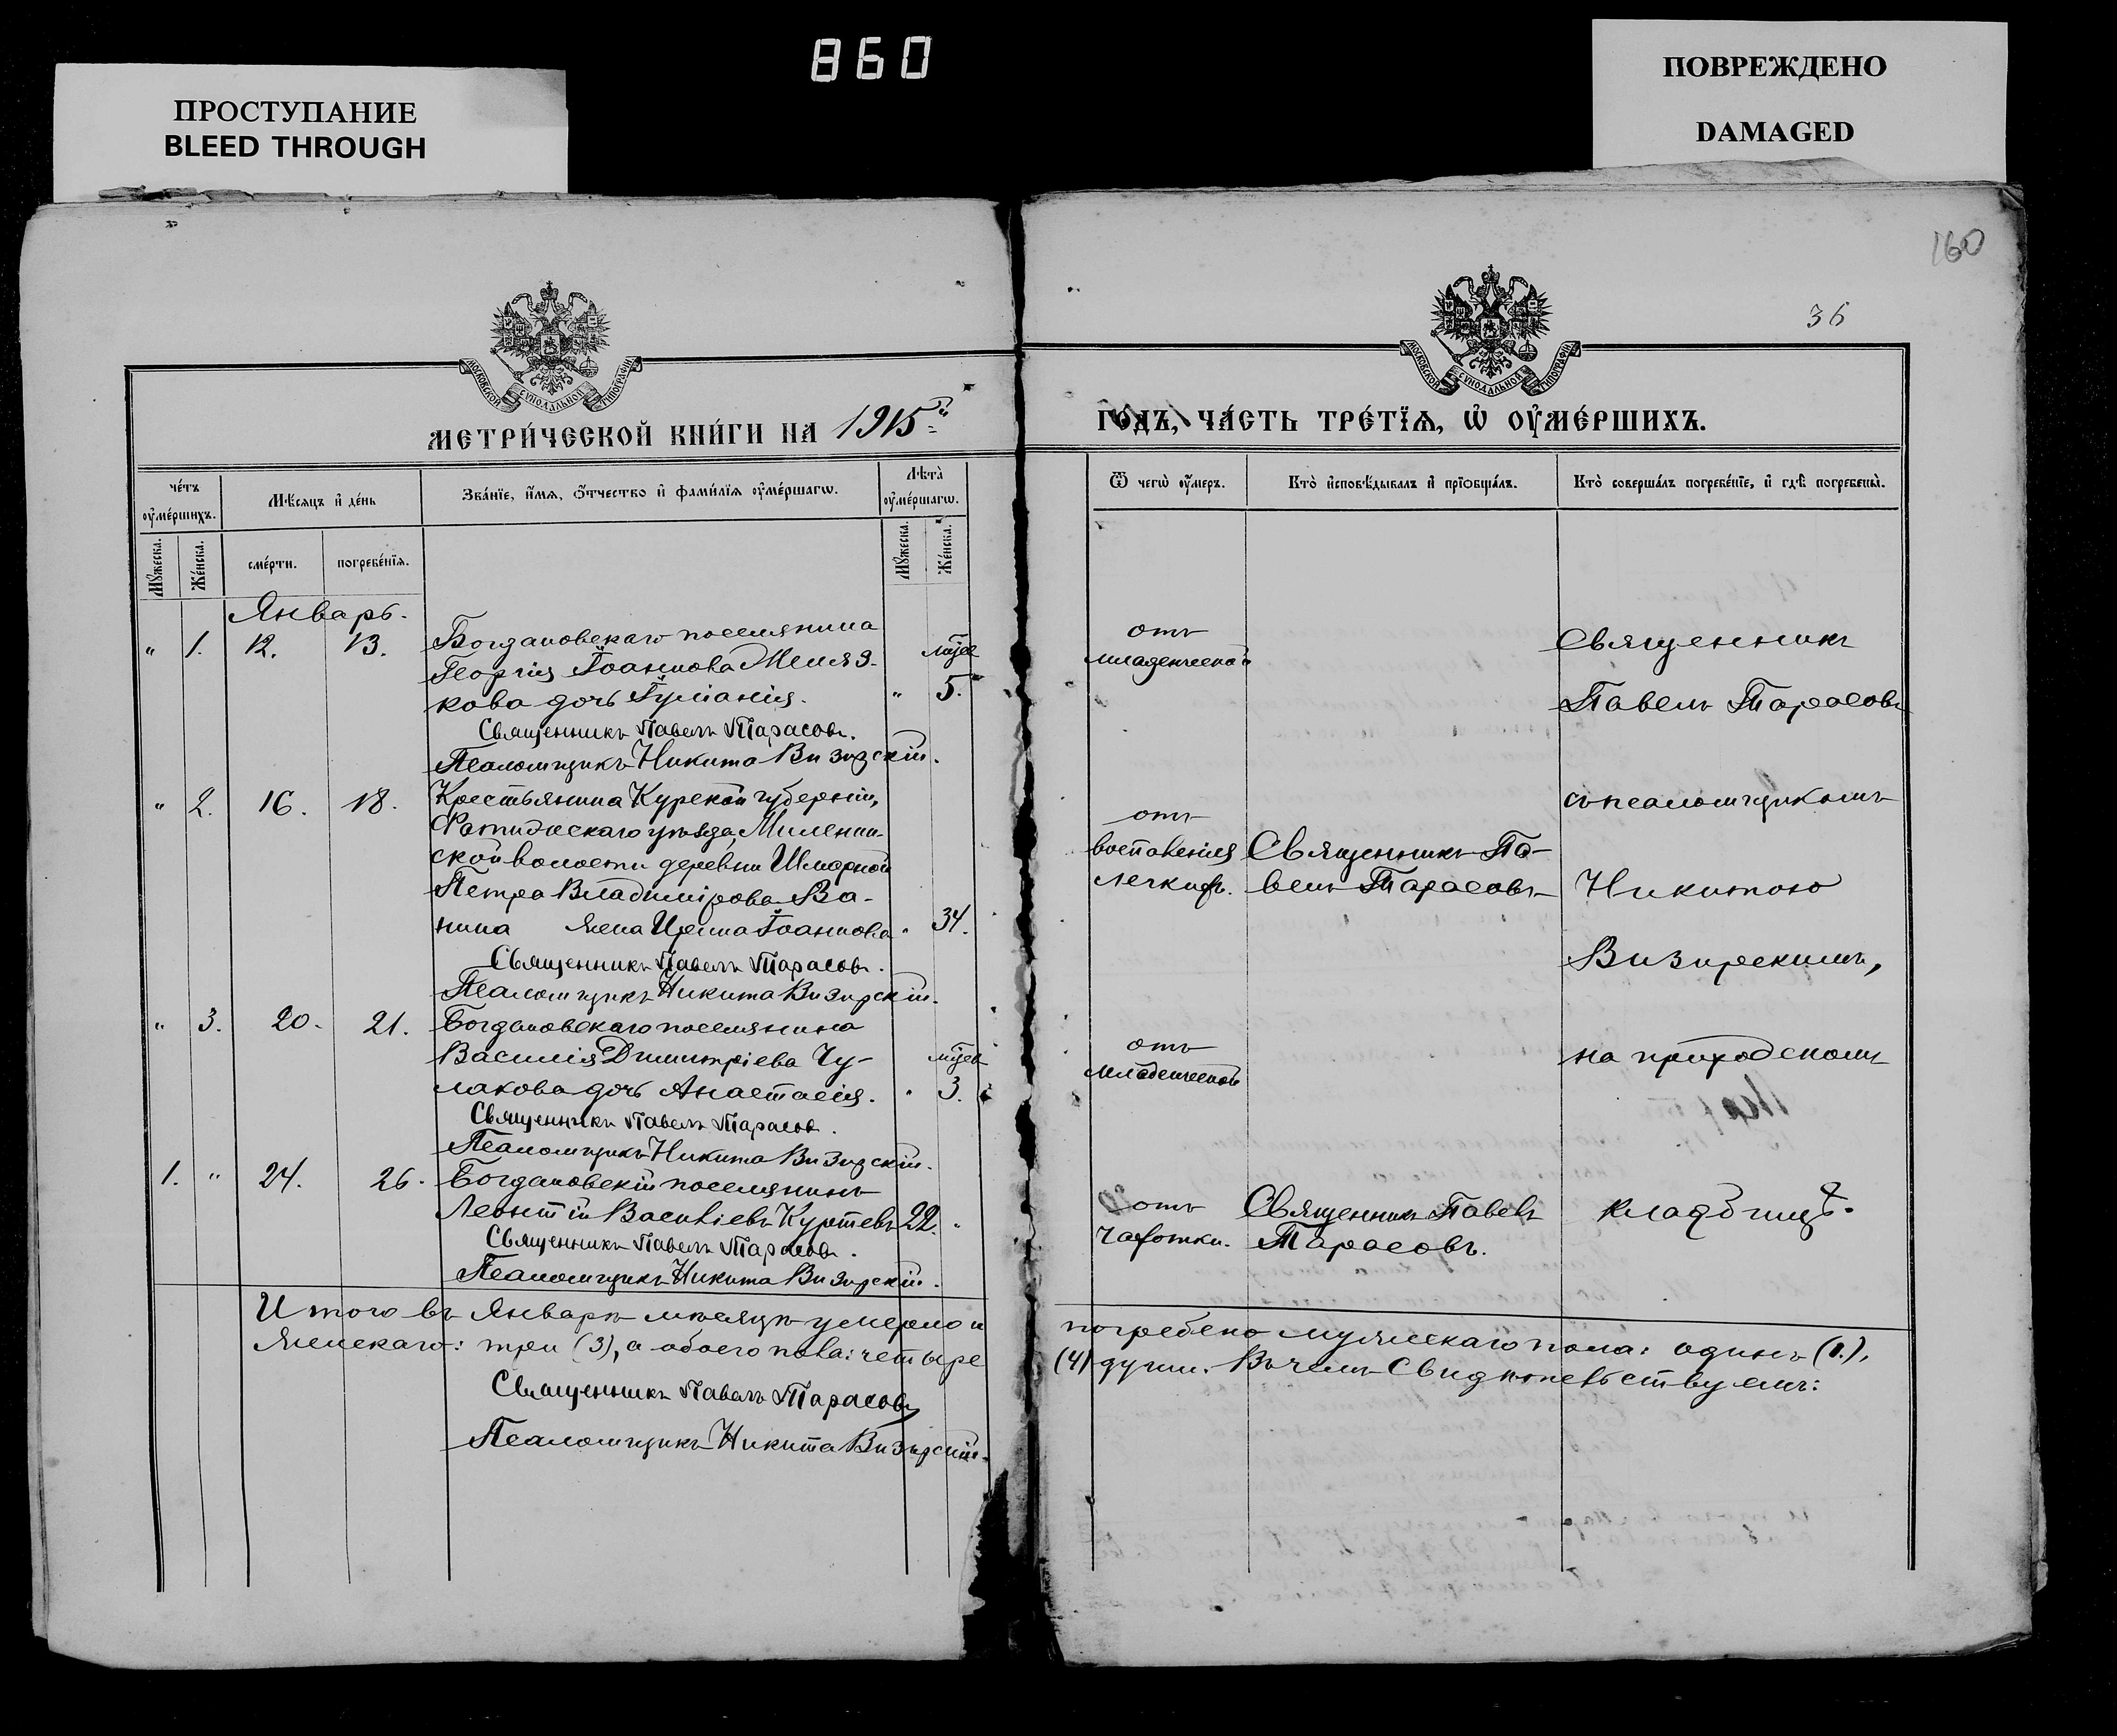 860
ПРОСТУПАНИЕ
BLEED THROUGH
ПОВРЕЖДЕНО
DAMAGED
160
36
МОСКОВСКОЙ СѴНОДАЛЬНОЙ ТИПОГРАФІИ
МОСКОВСКОЙ СѴНОДАЛЬНОЙ ТИПОГРАФІИ
МЕТРИ́ЧЕСКОЙ КНИ́ГИ НА 1915й
ГО́ДЪ, ЧА́СТЬ ТРЕ́ТЇѦ, Ѡ҆ ОУ҆МЕ́РШИХЪ.
Че́тъ оу҆ме́ршихъ.
Мѣ́сѧцъ и҆ де́нь
Зва́нїе, и҆́мѧ, ѻ҆́тчество и҆ фами́лїѧ оу҆ме́ршагѡ.
Лѣ́та оу҆ме́ршагѡ.
Ѿ чегѡ̀ оу҆́меръ.
Кто̀ и҆сповѣ́дывалъ и҆ прїѡбща́лъ.
Кто̀ соверша́лъ погребе́нїе, и҆ гдѣ̀ погребены̀.
Мꙋ́жеска.
Же́нска.
сме́рти.
погребе́нїѧ.
Мꙋ́жеска.
Же́нска.
Январь.
" 1. 12. 13. Богдановскаго поселянина
Георгія Іоаннова Меляз-
кова дочь Іуліанія. " 5.
Священникъ Павелъ Тарасовъ.
Псаломщикъ Никита Визирскій.
отъ
младенческой
Священникъ
Павелъ Тарасовъ
" 2. 16. 18. Крестьянина Курской губерніи,
уѣзда,
ской волости деревни
Петра Владимірова Ва-
нина жена Ирина Іоаннова " 34.
Священникъ Павелъ Тарасовъ.
Псаломщикъ Никита Визирскій.
отъ
воспаленія
легкихъ.
Священникъ Па-
велъ Тарасовъ
съ псаломщикомъ
Никитою
Визирскимъ,
" 3. 20. 21. Богдановскаго поселянина
Василія Димитріева Чу-
лакова дочь Анастасія. " 3.
Священникъ Павелъ Тарасов.
Псаломщикъ Никита Визирскій.
отъ
младенческой
на приходскомъ
1. " 24. 26. Богдановскій поселянинъ
Леонтій Васильевъ Куртевъ 22. "
Священникъ Павелъ Тарасовъ.
Псаломщикъ Никита Визирскій.
отъ
чахотки.
Священникъ Павелъ
Тарасовъ.
кладбищѣ.
Итого въ Январѣ мѣсяцѣ умерло и погребено мужескаго пола: одинъ (1.),
женскаго: три (3), а обоего пола: четыре (4) души. Въ чемъ свидѣтельствуемъ:
Священникъ Павелъ Тарасовъ
Псаломщикъ Никита Визирскій.